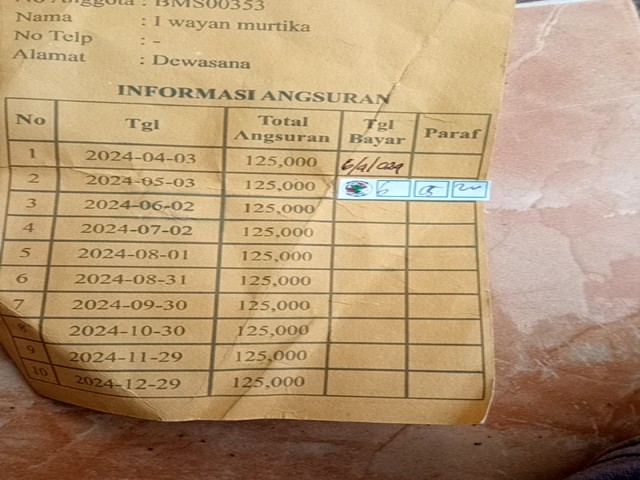 No Anggota : BMS00353
Nama : I wayan murtika
No Telp : -
Alamat : Dewasana
INFORMASI ANGSURAN
No Tgl Total Angsuran Tgl Bayar Paraf
1 2024-04-03 125,000
2 2024-05-03 125,000 6
3 2024-06-02 125,000
4 2024-07-02 125,000
5 2024-08-01 125,000
6 2024-08-31 125,000
7 2024-09-30 125,000
8 2024-10-30 125,000
9 2024-11-29 125,000
10 2024-12-29 125,000